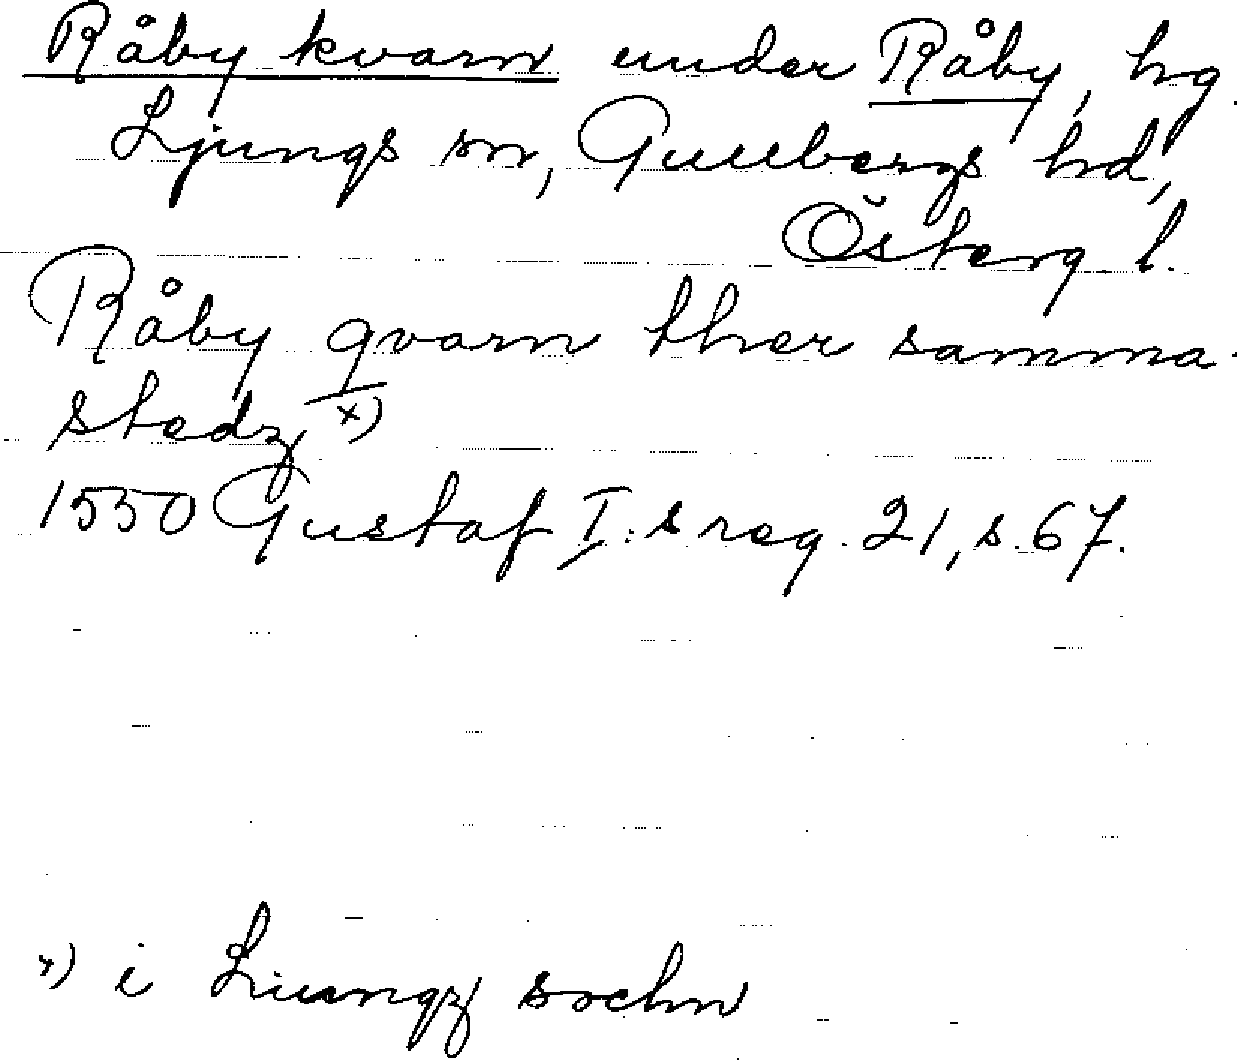 Råby kvarn under Råby, hg.
Ljungs sn, Gullbergs hd,
Österg l.
Råby qvarn ther samma
stedz x)
1550 Gustaf I:s reg. 21, s. 67.
x) i Liungz sochn